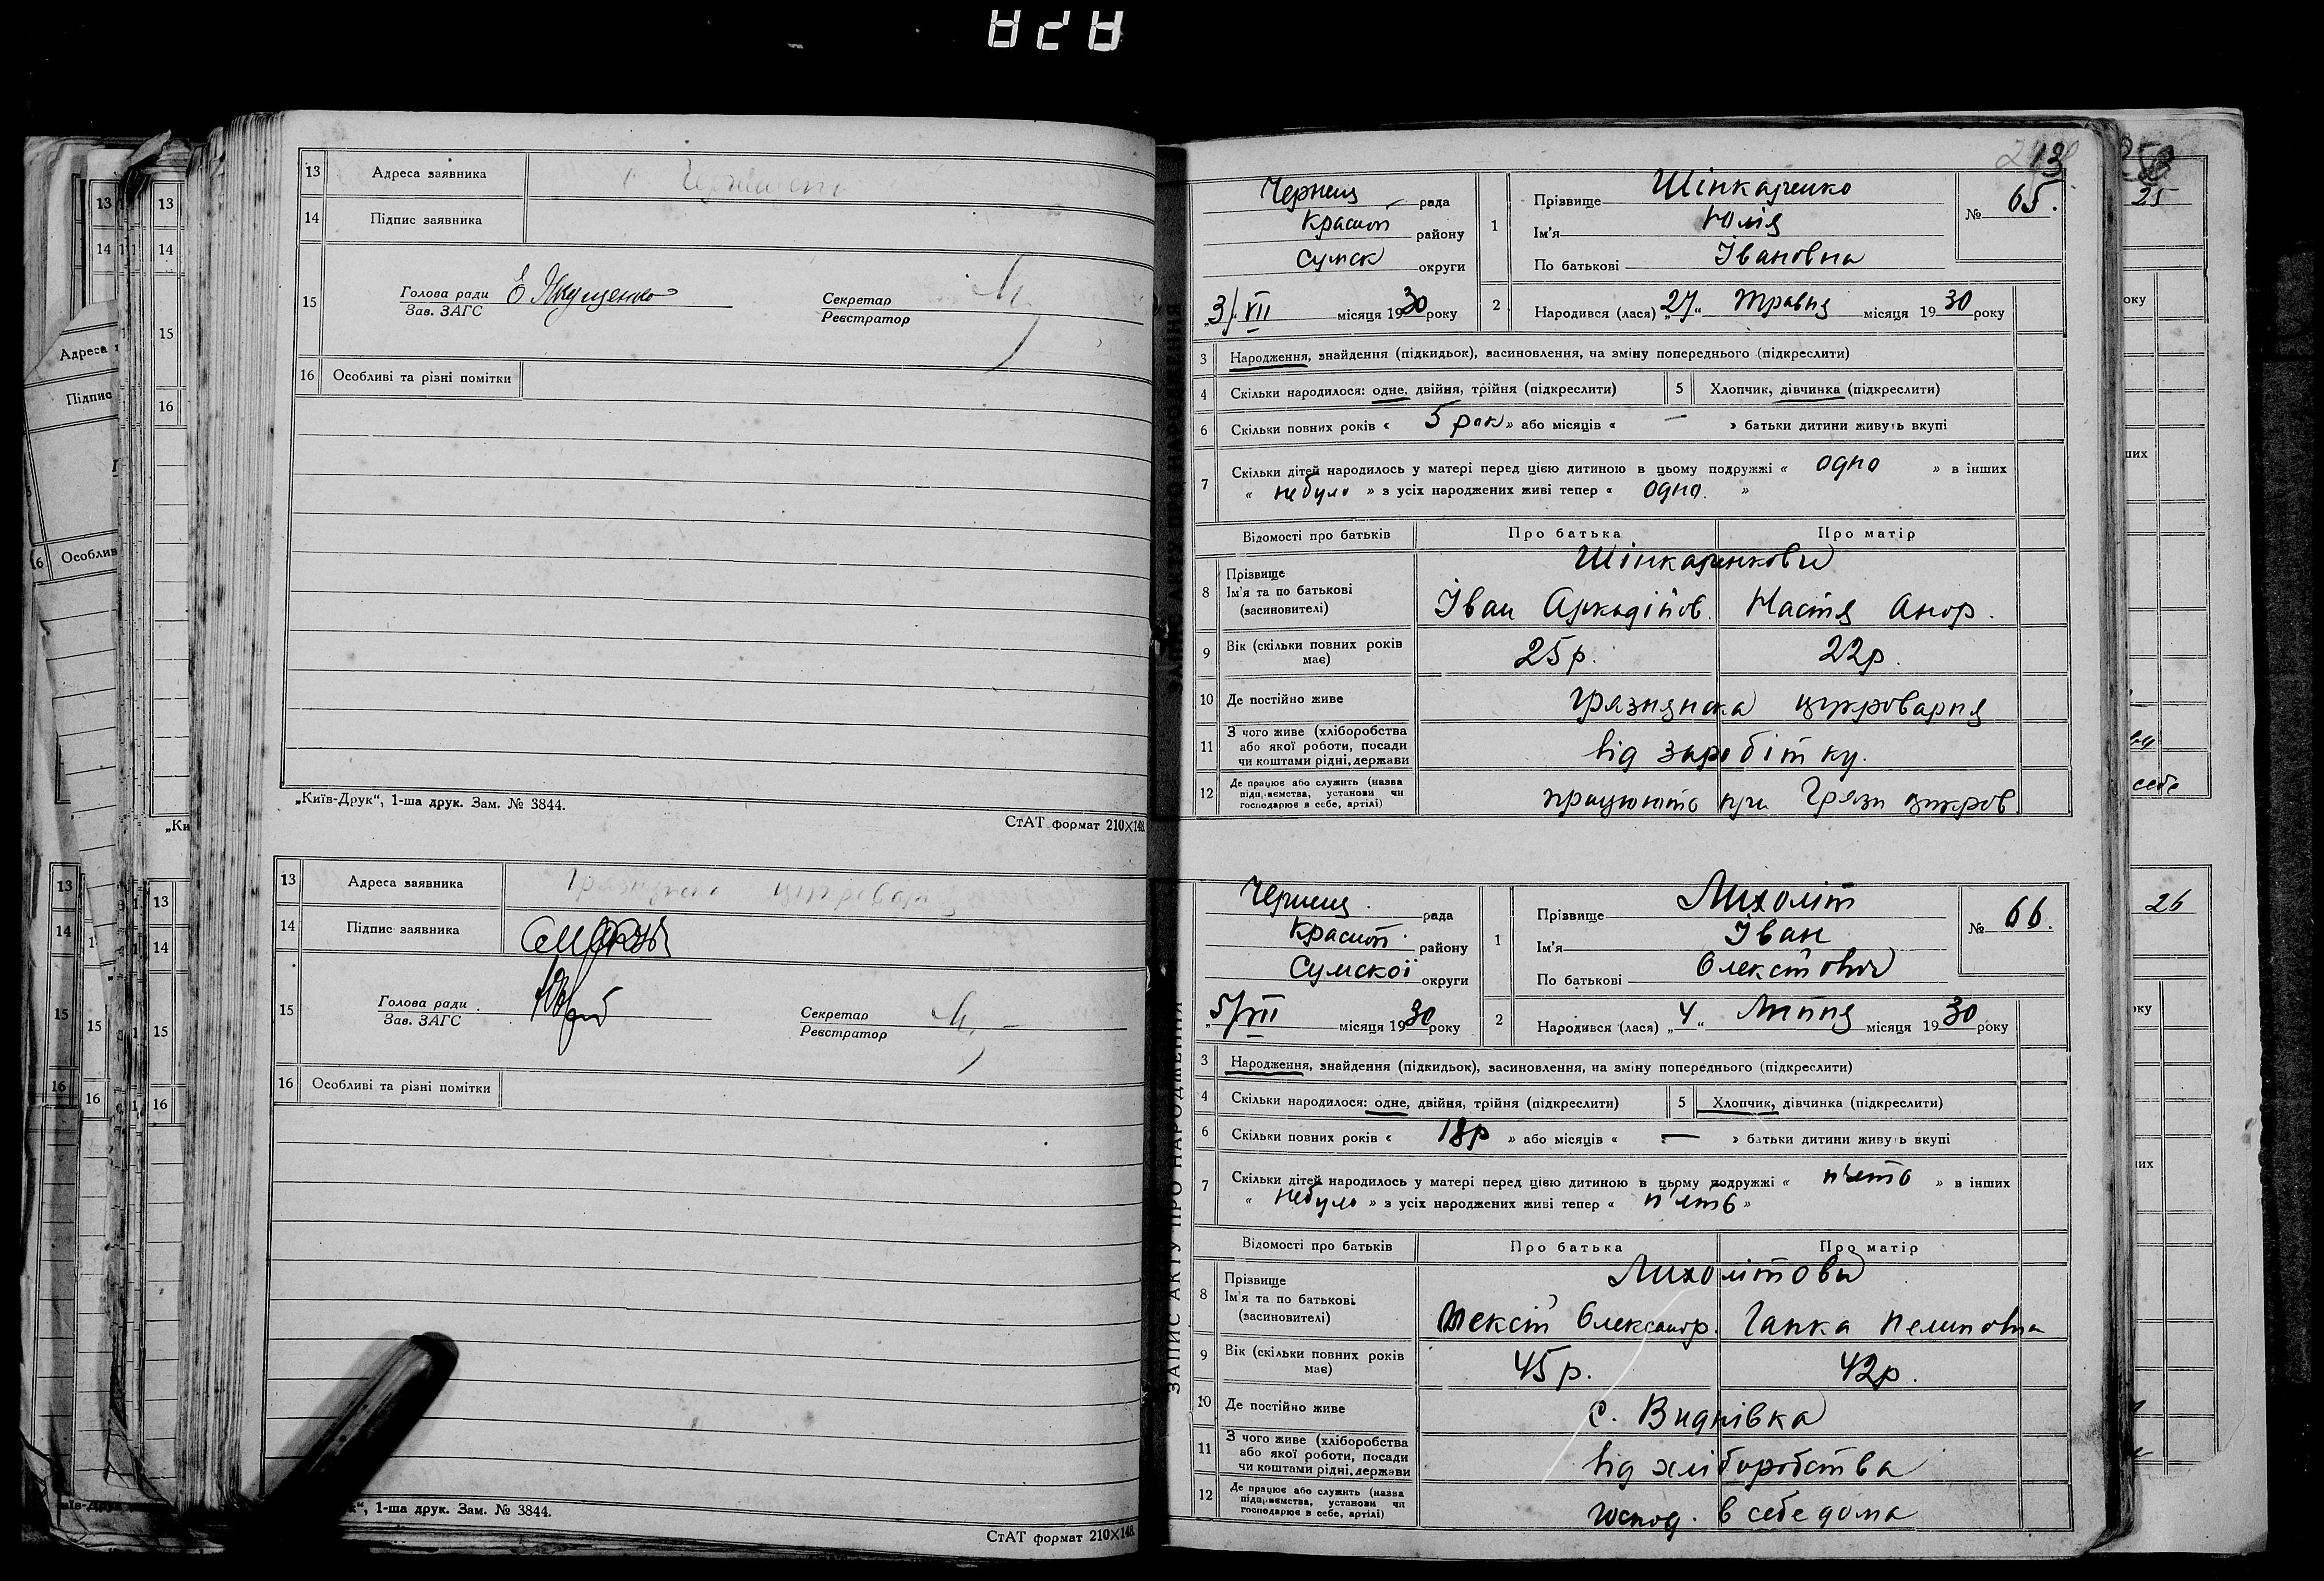 828
13 Адреса заявника
14 Підпис заявника
15 Голова ради Е Якущенко Секретар
Зав. ЗАГС Реєстратор
16 Особливі та різні помітки
„Київ-Друк“, 1-ша друк. Зам. № 3844.
СтАТ формат 210×148.
13 Адреса заявника
14 Підпис заявника
15 Голова ради Секретар
Зав. ЗАГС Реєстратор
16 Особливі та різні помітки
“, 1-ша друк. Зам. № 3844.
СтАТ формат 210×148.
Чернеч рада
Красноп району
Сумск округи
„3/VII місяця 1930 року
1 Прізвище Шінкаренко
Ім'я Юлія
По батькові Івановна
№ 65.
2 Народився (лася) „27“ Травня місяця 1930 року
3 Народження, знайдення (підкидьок), васиновлення, на зміну попереднього (підкреслити)
4 Скільки народилося: одне, двійня, трійня (підкреслити) 5 Хлопчик, дівчинка (підкреслити)
6 Скільки повних років « 5 рок » або місяців « — » батьки дитини живуть вкупі
7 Скільки дітей народилось у матері перед цією дитиною в цьому подружжі « одно » в інших
« небуло » з усіх народжених живі тепер « одно. »
Відомості про батьків Про батька Про матір
8 Прізвище Шінкаренкови
Ім'я та по батькові Іван Аркадійов. Настя
(засиновителі)
9 Вік (скільки повних років має) 25р. 22р.
10 Де постійно живе Грязнянска цукроварня
11 З чого живе (хліборобства
або якої роботи, посади від заробітку.
чи коштами рідні, держави
12 Де працює або служить (назва
підприємства, установи чи працюють при Грязн цукров
господарює в себе, артілі)
Чернеч. рада
Красноп. району
Сумскої округи
5/VII місяця 1930 року
1 Прізвище Лихоліт
Ім'я Іван
По батькові Олексійович
№ 66.
2 Народився (лася) „4“ Липня місяця 1930 року
3 Народження, знайдення (підкидьок), васиновлення, на зміну попереднього (підкреслити)
4 Скільки народилося: одне, двійня, трійня (підкреслити) 5 Хлопчик, дівчинка (підкреслити)
6 Скільки повних років « 18р » або місяців « — » батьки дитини живуть вкупі
7 Скільки дітей народилось у матері перед цією дитиною в цьому подружжі « пʼять » в інших
« небуло » з усіх народжених живі тепер « п'ять »
Відомості про батьків Про батька Про матір
8 Прізвище Лихолітови
Ім'я та по батькові Олексій Олександр. Ганка
(засиновителі)
9 Вік (скільки повних років має) 45р. 42р.
10 Де постійно живе с. Виднівка
11 З чого живе (хліборобства
або якої роботи, посади від хліборобства
чи коштами рідні, держави
12 Де працює або служить (назва
підприємства, установи чи Господ. в себе дома
господарює в себе, артілі)
ЗАПИС АКТУ ПРО НАРОДЖЕННЯ
25
26
себе